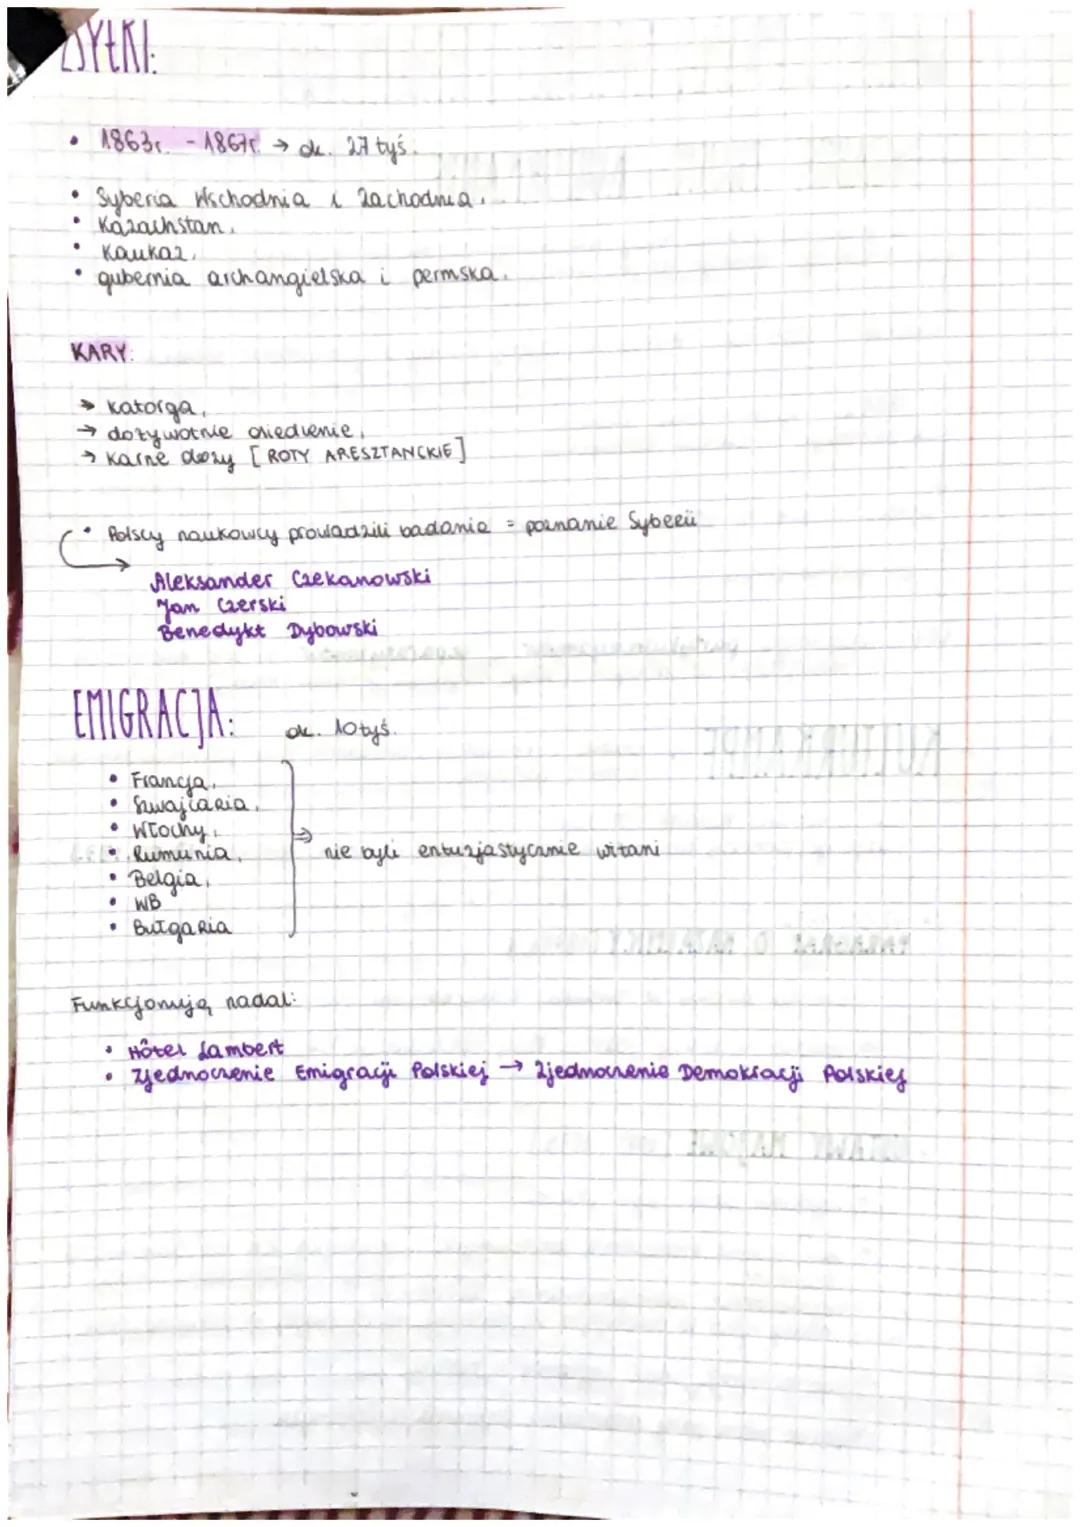 ZSYŁKI:
• 1863r. - 1867r. → ok. 27 tyś.
• Syberia Wschodnia i Zachodnia,
• Kazachstan,
• Kaukaz,
• gubernia archangielska i permska.
KARY:
→ katorga,
→ dożywotnie osiedlenie,
→ Karne obozy [ROTY ARESZTANCKIE]
• Polscy naukowcy prowadzili badania = poznanie Syberii
Aleksander Czekanowski
Jan Czerski
Benedykt Dybowski
EMIGRACJA: ok. 10 tyś.
• Francja,
• Szwajcaria,
• Włochy,
• Rumunia, → nie byli entuzjastycznie witani
• Belgia,
• WB
• Bułgaria
Funkcjonują nadal:
• Hôtel Lambert
• Zjednoczenie Emigracji Polskiej → Zjednoczenie Demokracji Polskiej